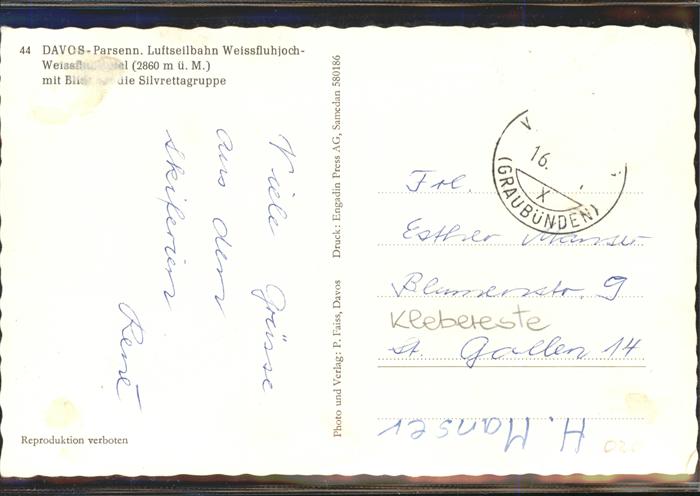 44 DAVOS-Parsenn. Luftseilbahn Weissfluhjoch-
(2860 m ü. M.)
mit die Silvrettagruppe
Viele Grüsse
aus den
Skiferien
René
Reproduktion verboten
Photo und Verlag: P. Faiss, Davos Druck: Engadin Press AG, Samedan 580186
16.
X
(GRAUBÜNDEN)
Frl.
Esther Manser
Blumenstr. 9
Klebereste
St. Gallen 14
H. Manser